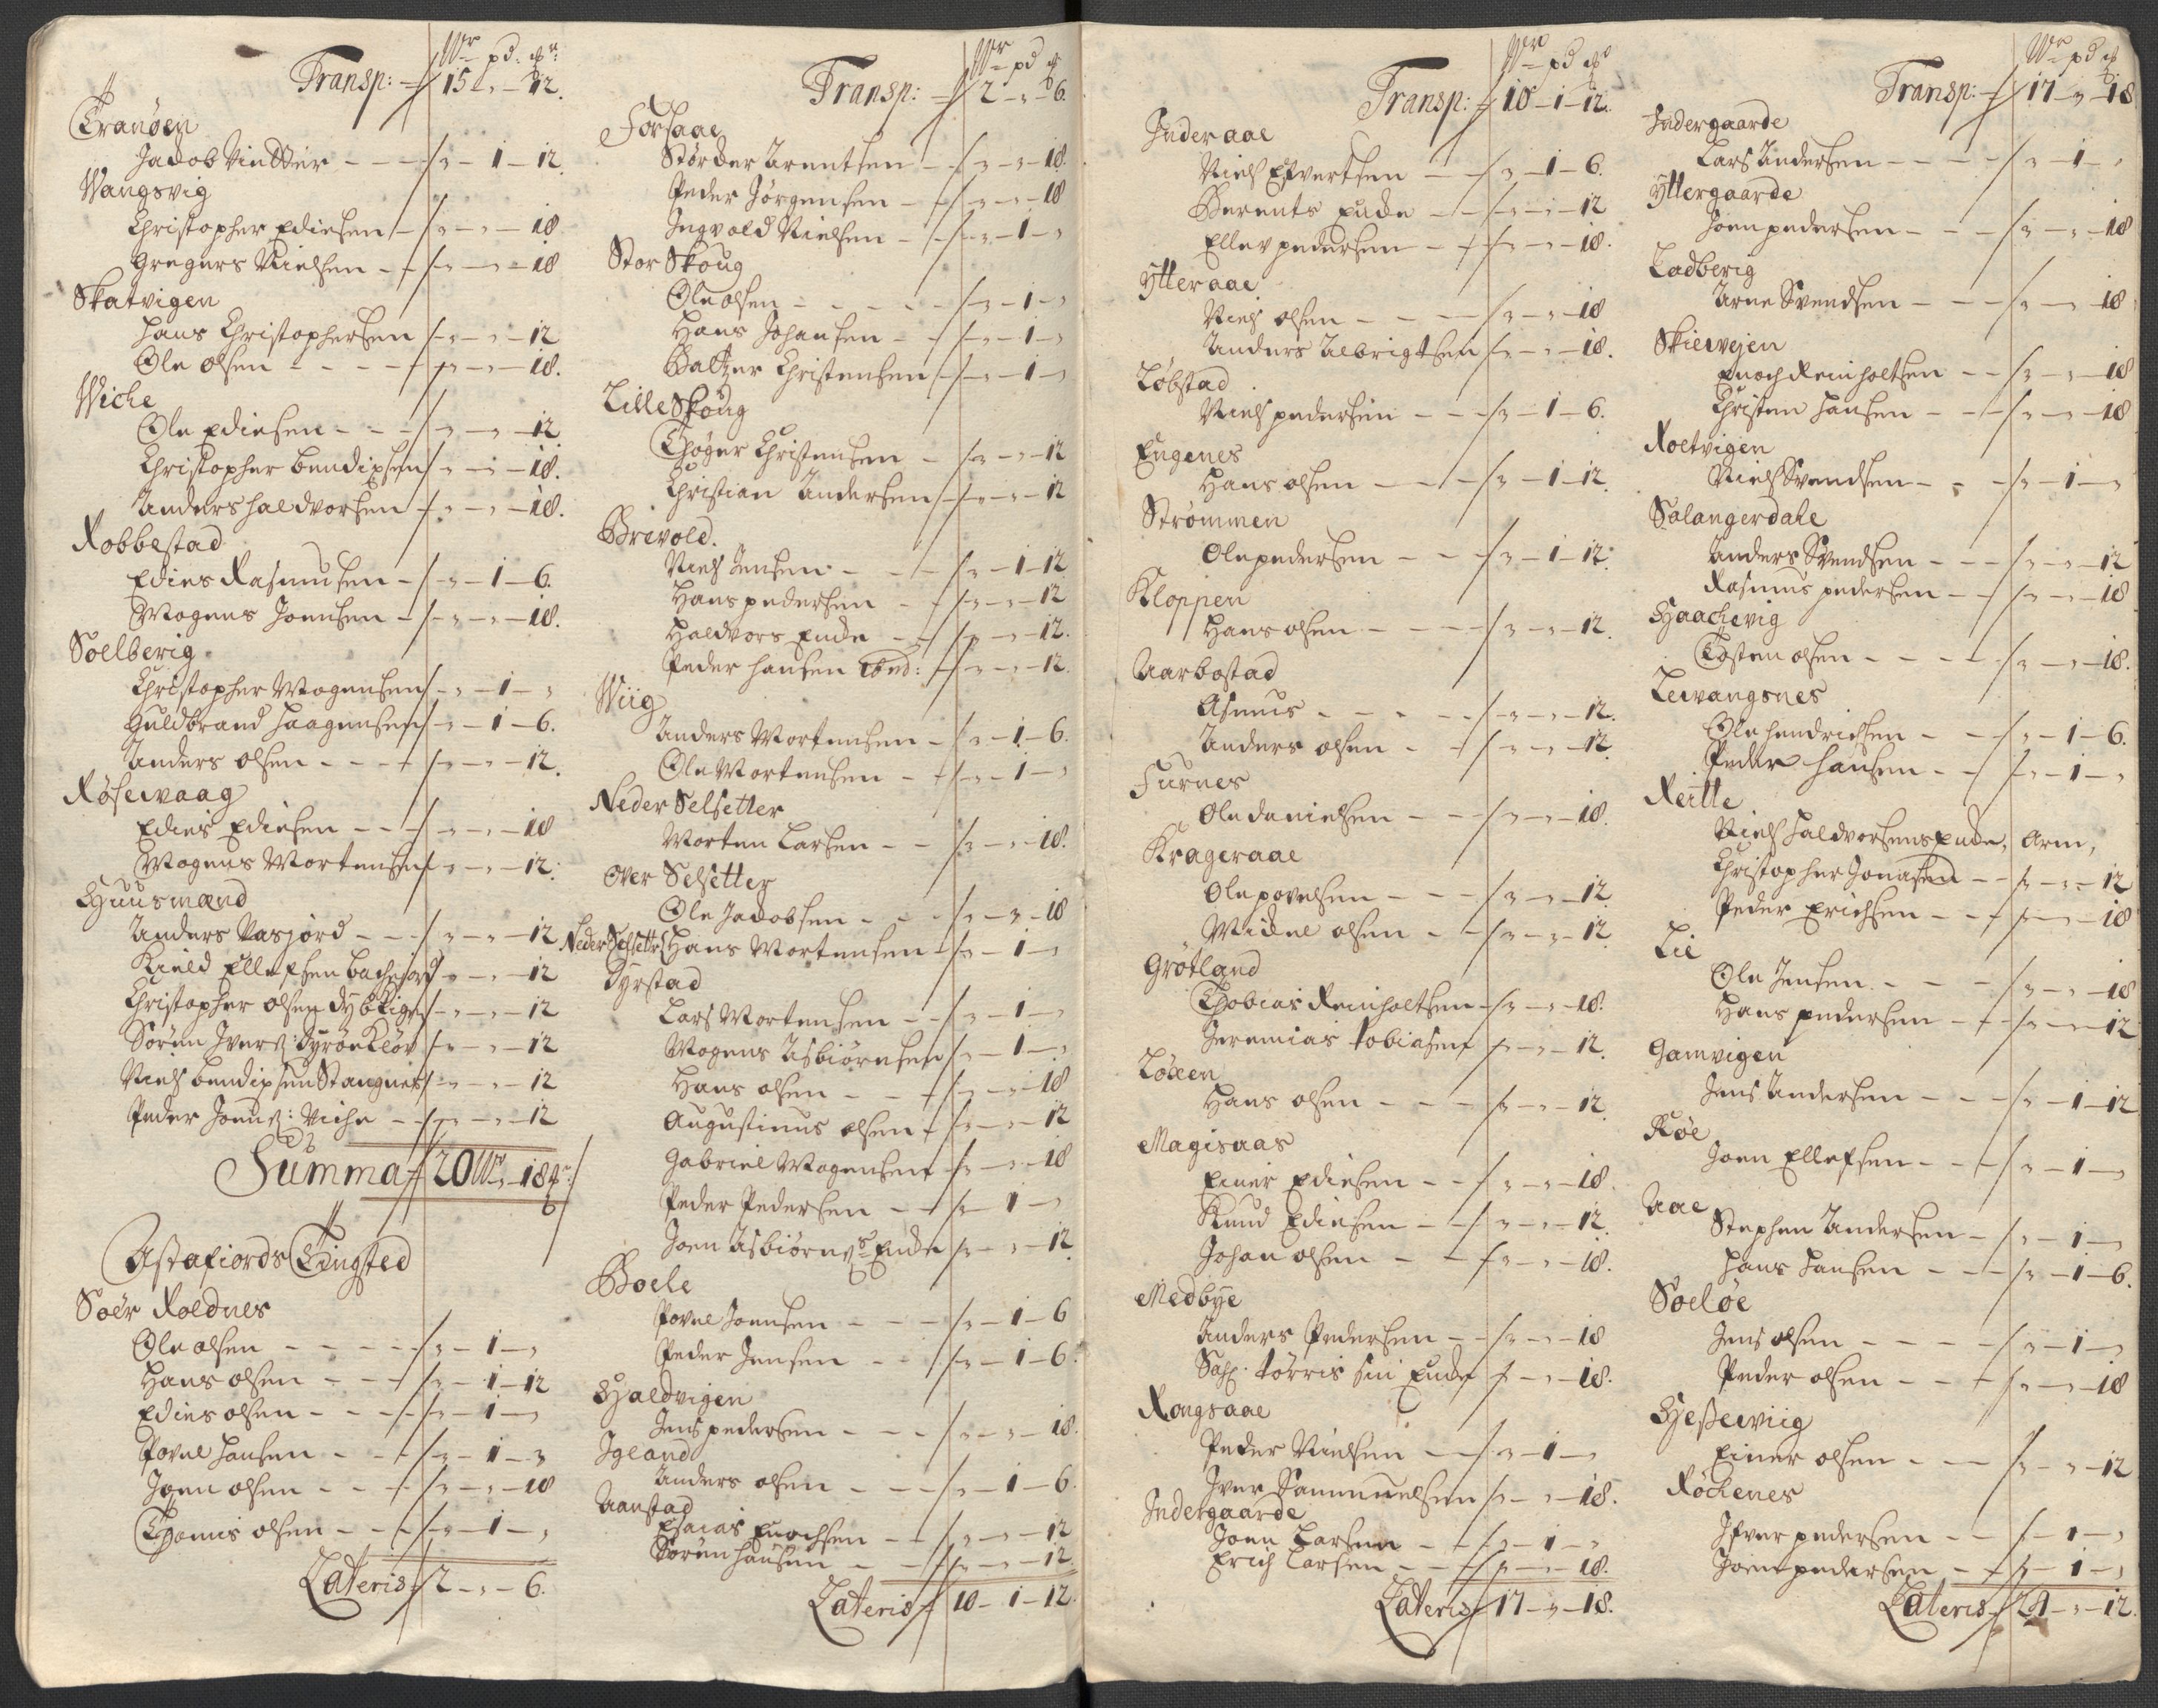 Wr pd. ℔r:
Transp: 15 " 12.
Tranøen
Jacob Vindter - - - " - 1 - 12.
Wangsvig
Christopher Ediesen - " - " - 18
Gregers Nielsen - - " - " - 18
Skatvigen
Hans Christophersen - " - " - 12
Ole Olsen - - - - " - " - 18.
Wiche
Ole Ediesen - - - " - " - 12.
Christopher Bendixsen " - " - 18.
Anders Haldvorsen - " - " - 18.
Robbestad
Edies Rasmusen - " - 1 - 6.
Mogens Joensen - " - " - 18.
Soelberig
Christopher Mogensen " - 1 - "
Guldbrand Haagensen " - 1 - 6.
Anders Olsen - - - " - " - 12.
Røsewaag
Edies Ediesen - - - " - " - 18
Mogens Mortensen " - " - 12.
Huusmænd
Anders Vasjord - - - " - " - 12
Kield Ellefsen Bachejord " - " - 12
Christopher Olsen " - " - 12
Søren Ivers: Dyrøe Kløv " - " - 12
Niels Bendixsen Stangnes " - " - 12
Peder Joens: Viche - - " - " - 12
Summa 20 Wr " 18 ℔r:
Astafiords Tingsted
Soer Roldnes
Ole Olsen - - - - - " - 1 - "
Hans Olsen - - - " - 1 - 12
Edies Olsen - - - - " - 1 - "
Povel Hansen - - - " - 1 - "
Joen Olsen - - - - " - " - 18
Thomis Olsen - - - " - 1 - "
Lateris 2 - " - 6.
Wr pd ℔
Transp: 2 - " - 6.
Forsaae
Størcker Arentsen - " - " - 18.
Peder Jørgensen - - " - " - 18
Ingvold Nielsen - - " - 1 - "
Stor Skoug
Ole Olsen - - - - - " - 1 - "
Hans Johansen - - " - 1 - "
Baltzer Christensen " - 1 - "
Lille Skoug
Thøger Christensen - " - " - 12
Christian Andersen - " - " - 12
Brevold.
Niels Jensen - - - " - 1 - 12
Hans Pedersen - - " - " - 12
Haldvors Enche - - " - " - 12.
Peder Hansen - " - " - 12.
Wiig
Anders Mortensen - " - 1 - 6.
Ole Mortensen - - " - 1 - "
Neder Selsetter
Morten Larsen - - " - " - 18.
Over Selsetter
Ole Jacobsen - - - " - " - 18
Neder Selsetter Hans Mortensen - " - 1 - "
Dyrstad
Lars Mortensen - - " - 1 - "
Mogens Asbiørnsen " - 1 - "
Hans Olsen - - - " - " - 18
Augustinus Olsen - " - " - 12
Gabriel Mogensen " - " - 18
Peder Pedersen - - " - 1 - "
Joen Asbiørns: Enche " - " - 12
Boele
Povel Joensen - - - " - 1 - 6
Peder Jensen - - " - 1 - 6.
Haldvigen
Jens Pedersen - - - " - " - 18.
Igeland
Anders Olsen - - - " - 1 - 6
Aanstad
Esaias Enochsen - - " - " - 12
Søren Hansen - - - " - " - 12
Lateris 10 - 1 - 12.
Wr pd ℔r
Transp: 10 - 1 - 12.
Inderaae
Niels Efvertsen - - " - 1 - 6.
Berents Enche - - " - " - 12
Ellev Pedersen - - " - " - 18.
Ytteraae
Niels Olsen - - - " - " - 18
Anders Albrigtsen " - " - 18.
Løbstad
Niels Pedersen - - - " - 1 - 6.
Engenes
Hans Olsen - - - " - 1 - 12.
Strømmen
Ole Pedersen - - - " - 1 - 12.
Kloppen
Hans Olsen - - - - " - " - 12.
Aarbostad
Asmus - - - - - " - " - 12.
Anders Olsen - - " - " - 12.
Furnes
Ole Danielsen - - - " - " - 18.
Krageraae
Ole Povelsen - - - " - " - 12.
Michel Olsen - - " - " - 12.
Grøtland
Thobias Reinholtsen - " - " - 18.
Jeremias Tobiasen " - " - 12.
Løxen
Hans Olsen - - - " - " - 12.
Magisaas
Einer Ediesen - - - " - " - 18.
Knud Ediesen - - " - " - 12.
Johan Olsen - - - " - " - 18.
Medbye
Anders Pedersen - - " - " - 18
Sal: Torris sin Enche " - " - 18.
Rongsaae
Peder Nielsen - - " - 1 - "
Iver Sammuelsen " - " - 18.
Indergaarde
Joen Larsen - - " - 1 - "
Erich Larsen - - - " - " - 18.
Lateris 17 - " - 18.
Wr pd ℔
Transp: 17 - " - 18
Indergaarde
Lars Andersen - - - - " - 1 - "
Yttergaarde
Joen Pedersen - - - " - " - 18
Ladberig
Arne Svendsen - - - " - " - 18
Skiewejen
Enoch Reinholtsen - - " - " - 18
Christen Hansen - - - " - " - 18
Roetvigen
Niels Svendsen - - - " - 1 - "
Salangerdale
Anders Svendsen - - - " - " - 12
Rasmus Pedersen - - " - " - 18
Haachevig
Tosten Olsen - - - - " - " - 18.
Lewangsnes
Ole Hendrichsen - - " - 1 - 6.
Peder Hansen - - " - 1 - "
Reitte
Niels Haldvorsens Enche, Arm,
Christopher Jonasen - - " - " - 12
Peder Erichsen - - - " - " - 18
Lie
Ole Jensen - - - " - " - 18
Hans Pedersen - - " - " - 12
Gamvigen
Jens Andersen - - - " - 1 - 12
Røe
Joen Ellefsen - - - " - 1 - "
Aae
Stephen Andersen - " - 1 - "
Hans Hansen - - - " - 1 - 6.
Soeløe
Jens Olsen - - - - - " - 1 - "
Peder Olsen - - - " - " - 18
Hessewiig
Einer Olsen - - - " - " - 12
Røchenes
Ifver Pedersen - - " - 1 - "
Joen Pedersen - - " - 1 - "
Lateris 21 - " - 12.